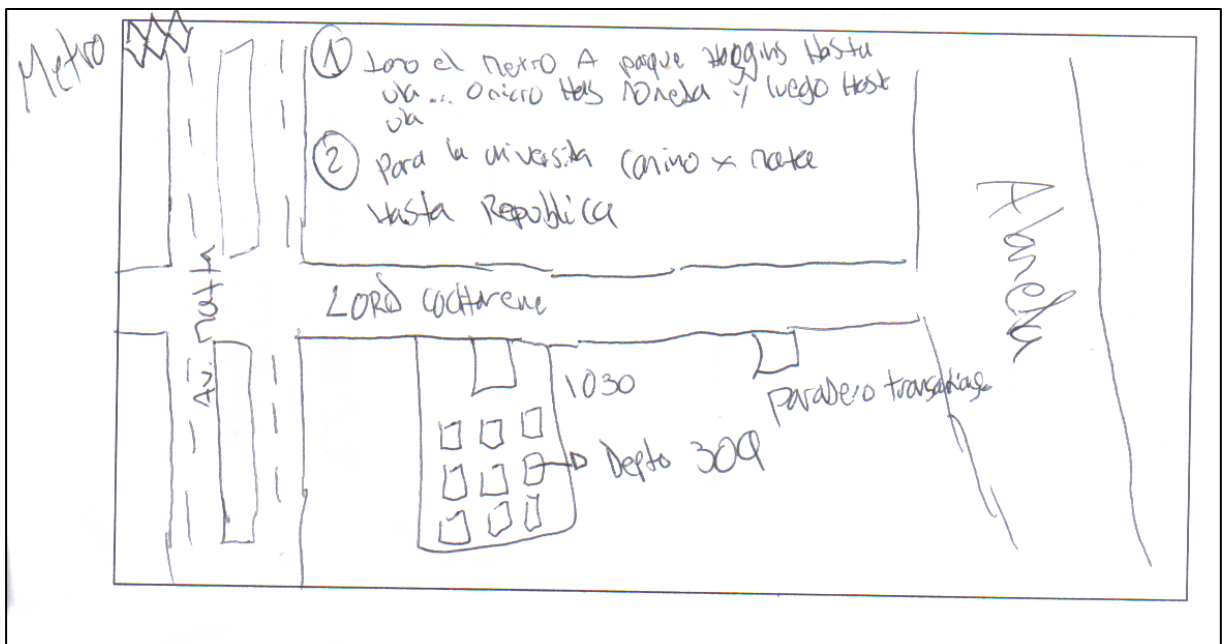 Metro
① Tomo el metro A parque Hoggins Hasta
ula... O micro Hasta Moneda y luego Hast
ula
② Para la universida camino x matta
Hasta Republica
Av. matta
LORD COCHTarene
Alameda
1030
paradero transantiago
Depto 309